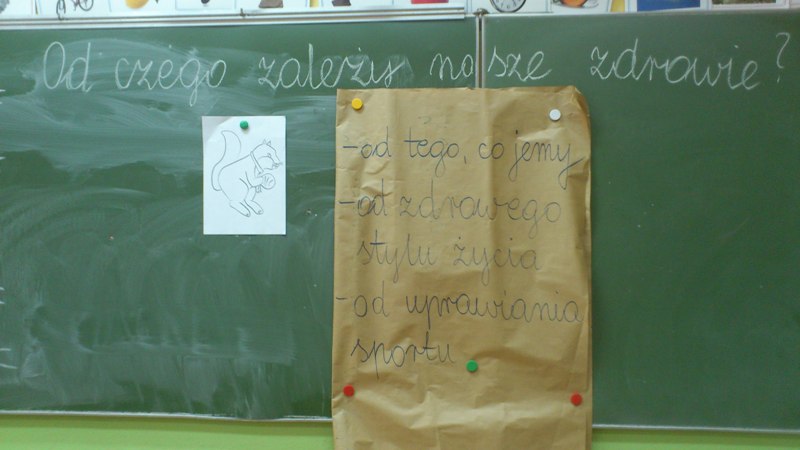 Od czego zależy nasze zdrowie?
-od tego, co jemy
-od zdrowego
stylu życia
-od uprawiania
sportu